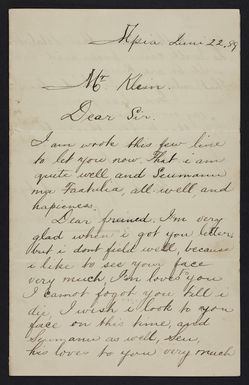 Apia Juni 22. 89
Mr Klein.
Dear Sir.
I am wrote this few line
to let you now. That i am
quite well and Seumanu
my Faatulia, all well and
hapiness.
Dear friened, I'm very
glad when i got you letters
but i dont field well, because
i like to see your face
very much, I'm loves you
I cannot forgot you till i
die, I wish i look to your
face on this time, and
Seumanu as well, Seu,
his loves to you very much